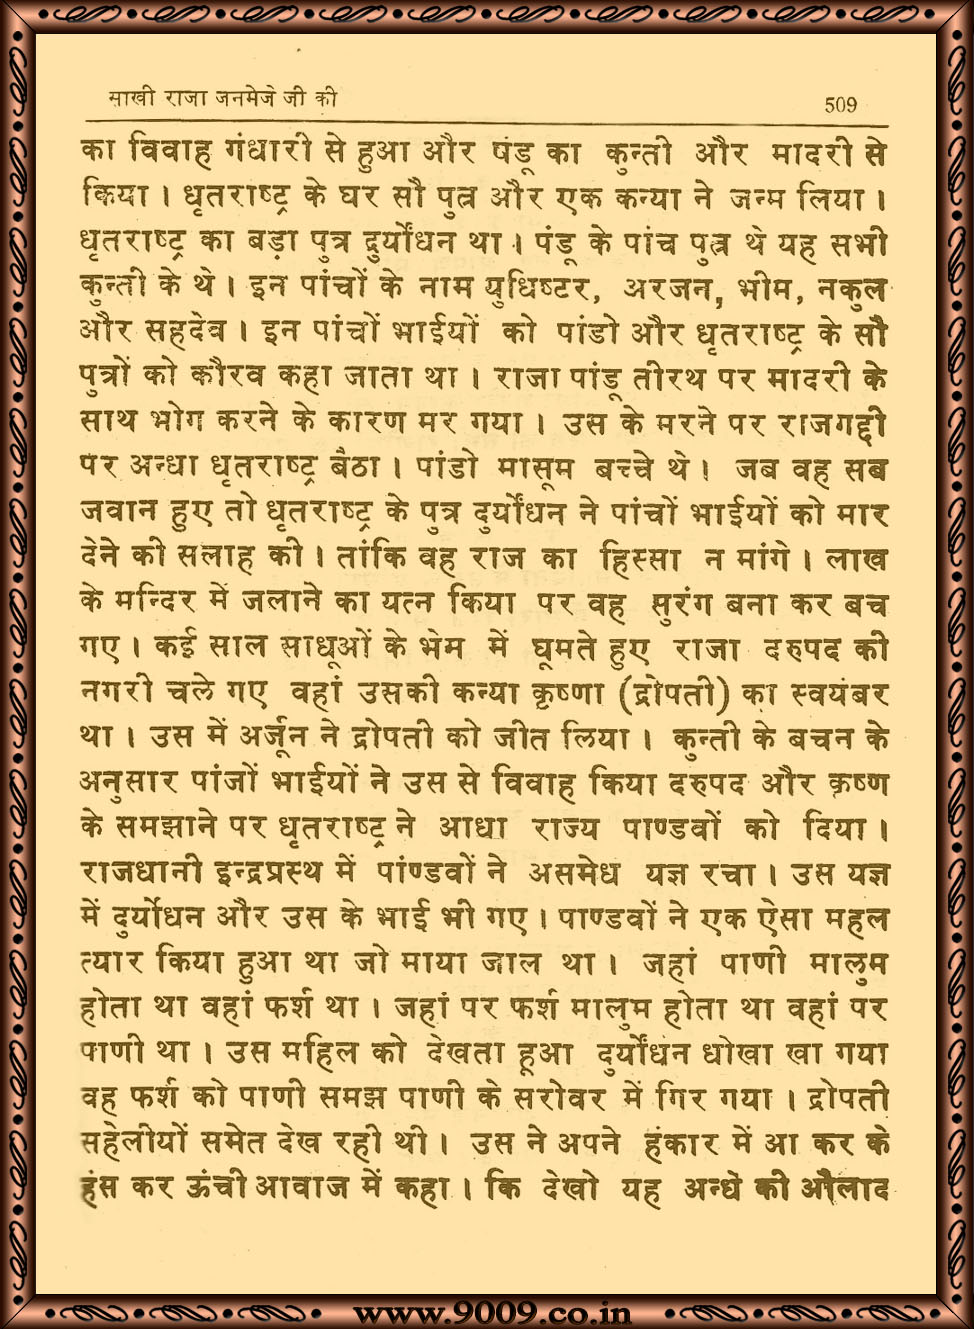 साखी राजा जनमेजे जी की
509
का विवाह गंधारी से हुआ और पंडू का कुन्ती और मादरी से
किया । धृतराष्ट्र के घर सौ पुत्र और एक कन्या ने जन्म लिया ।
धृतराष्ट्र का बड़ा पुत्र दुर्योधन था । पंडू के पांच पुत्र थे यह सभी
कुन्ती के थे । इन पांचों के नाम युधिष्टर, अरजन, भीम, नकुल
और सहदेव । इन पांचों भाईयों को पांडो और धृतराष्ट्र के सौ
पुत्रों को कौरव कहा जाता था । राजा पांडू तीरथ पर मादरी के
साथ भोग करने के कारण मर गया । उस के मरने पर राजगद्दी
पर अन्धा धृतराष्ट्र बैठा । पांडो मासूम बच्चे थे । जब वह सब
जवान हुए तो धृतराष्ट्र के पुत्र दुर्योधन ने पांचों भाईयों को मार
देने की सलाह की । तांकि वह राज का हिस्सा न मांगे । लाख
के मन्दिर में जलाने का यत्न किया पर वह सुरंग बना कर बच
गए । कई साल साधूओं के भेम में घूमते हुए राजा दरुपद की
नगरी चले गए वहां उसकी कन्या कृष्णा (द्रोपती) का स्वयंबर
था । उस में अर्जून ने द्रोपती को जीत लिया । कुन्ती के बचन के
अनुसार पांजों भाईयों ने उस से विवाह किया दरुपद और कृष्ण
के समझाने पर धृतराष्ट्र ने आधा राज्य पाण्डवों को दिया ।
राजधानी इन्द्रप्रस्थ में पांण्डवों ने असमेध यज्ञ रचा । उस यज्ञ
में दुर्योधन और उस के भाई भी गए । पाण्डवों ने एक ऐसा महल
त्यार किया हुआ था जो माया जाल था । जहां पाणी मालुम
होता था वहां फर्श था । जहां पर फर्श मालुम होता था वहां पर
पाणी था । उस महिल को देखता हूआ दुर्योधन धोखा खा गया
वह फर्श को पाणी समझ पाणी के सरोवर में गिर गया । द्रोपती
सहेलीयों समेत देख रही थी । उस ने अपने हंकार में आ कर के
हंस कर ऊंची आवाज में कहा । कि देखो यह अन्धे की औलाद
www.9009.co.in